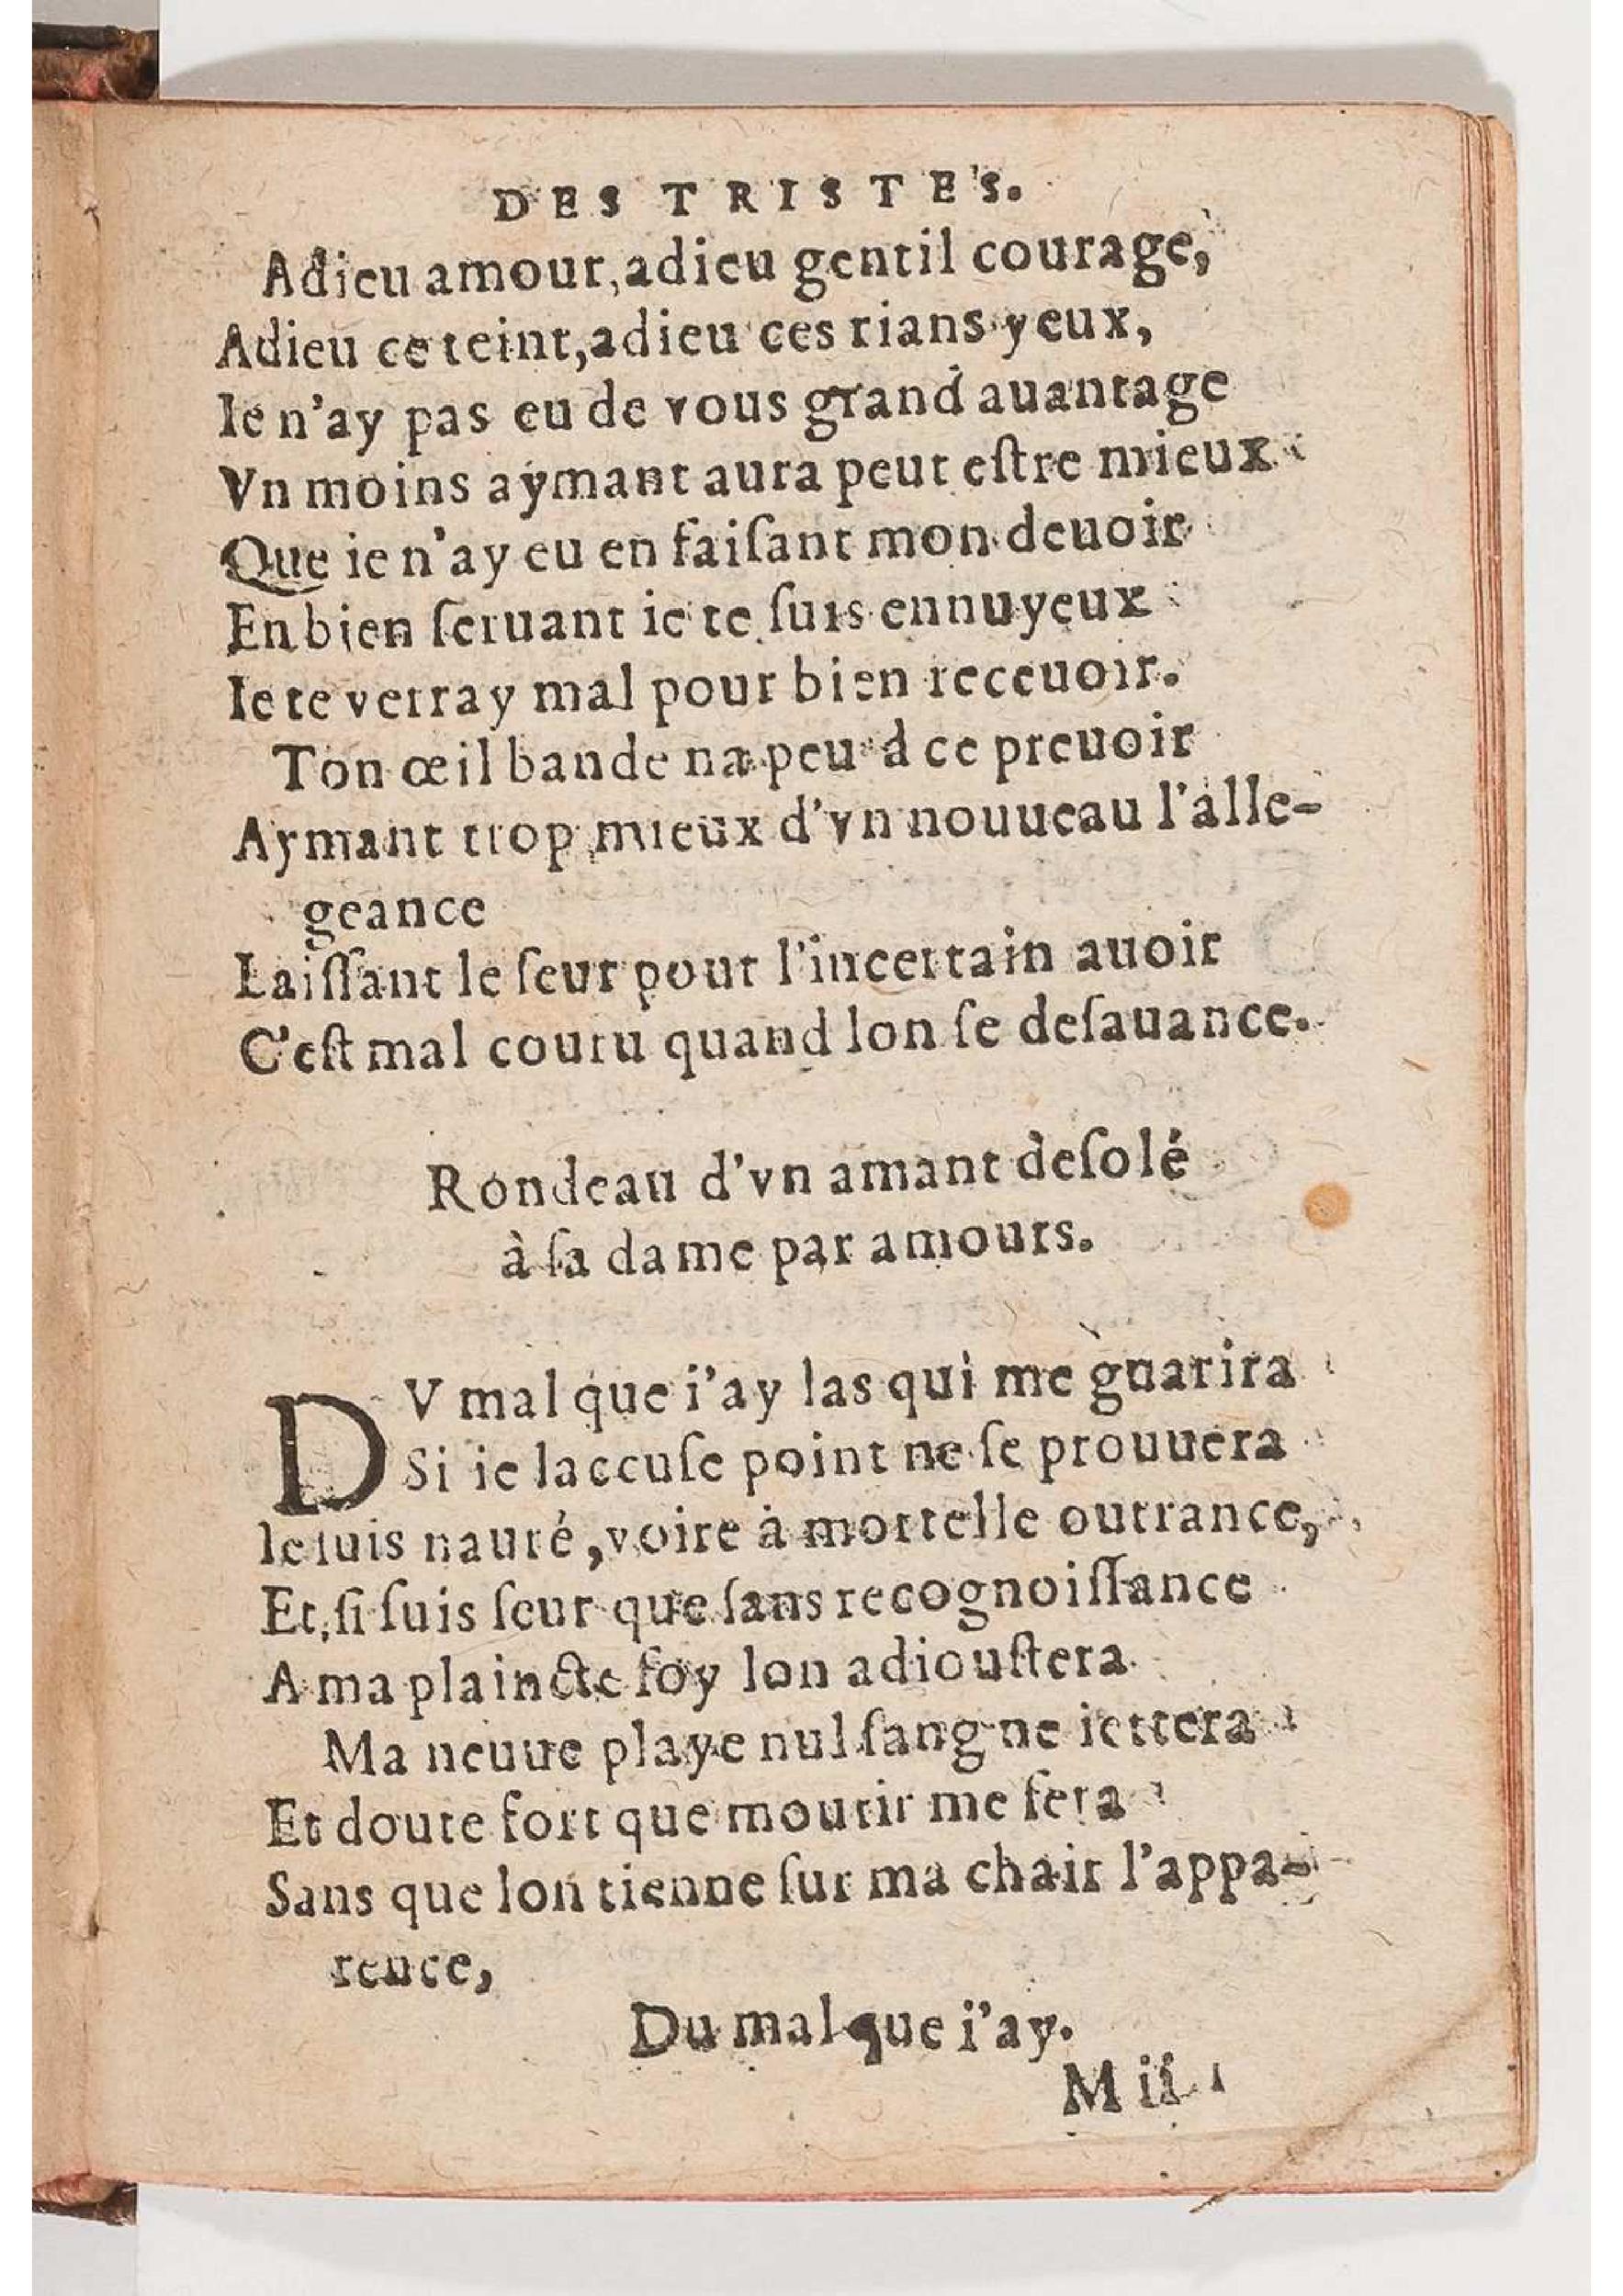 DES TRISTES.
Adieu amour, adieu gentil courage,
Adieu ce teint, adieu ces rians yeux,
Ie n'ay pas eu de vous grand auantage
Vn moins aymant aura peut eſtre mieux
Que ie n'ay eu en faiſant mon deuoir
En bien ſeruant ie te ſuis ennuyeux
Ie te verray mal pour bien receuoir.
Ton œil bande na peu à ce preuoir
Aymant trop mieux d'vn nouueau l'alle-
geance
Laiſſant le ſeur pour l'incertain auoir
C'eſt mal couru quand lon ſe deſauance.
Rondeau d'vn amant deſolé
à ſa dame par amours.
DV mal que i'ay las qui me guarira
Si ie laccuſe point ne ſe prouuera
Ie ſuis nauré, voire à mortelle outrance,
Et ſi ſuis ſeur que ſans recognoiſſance
A ma plaincte foy lon adiouſtera
Ma neuue playe nul ſang ne iettera
Et doute fort que mourir me fera
Sans que lon tienne ſur ma chair l'appa-
rence,
Du mal que i'ay.
M ii